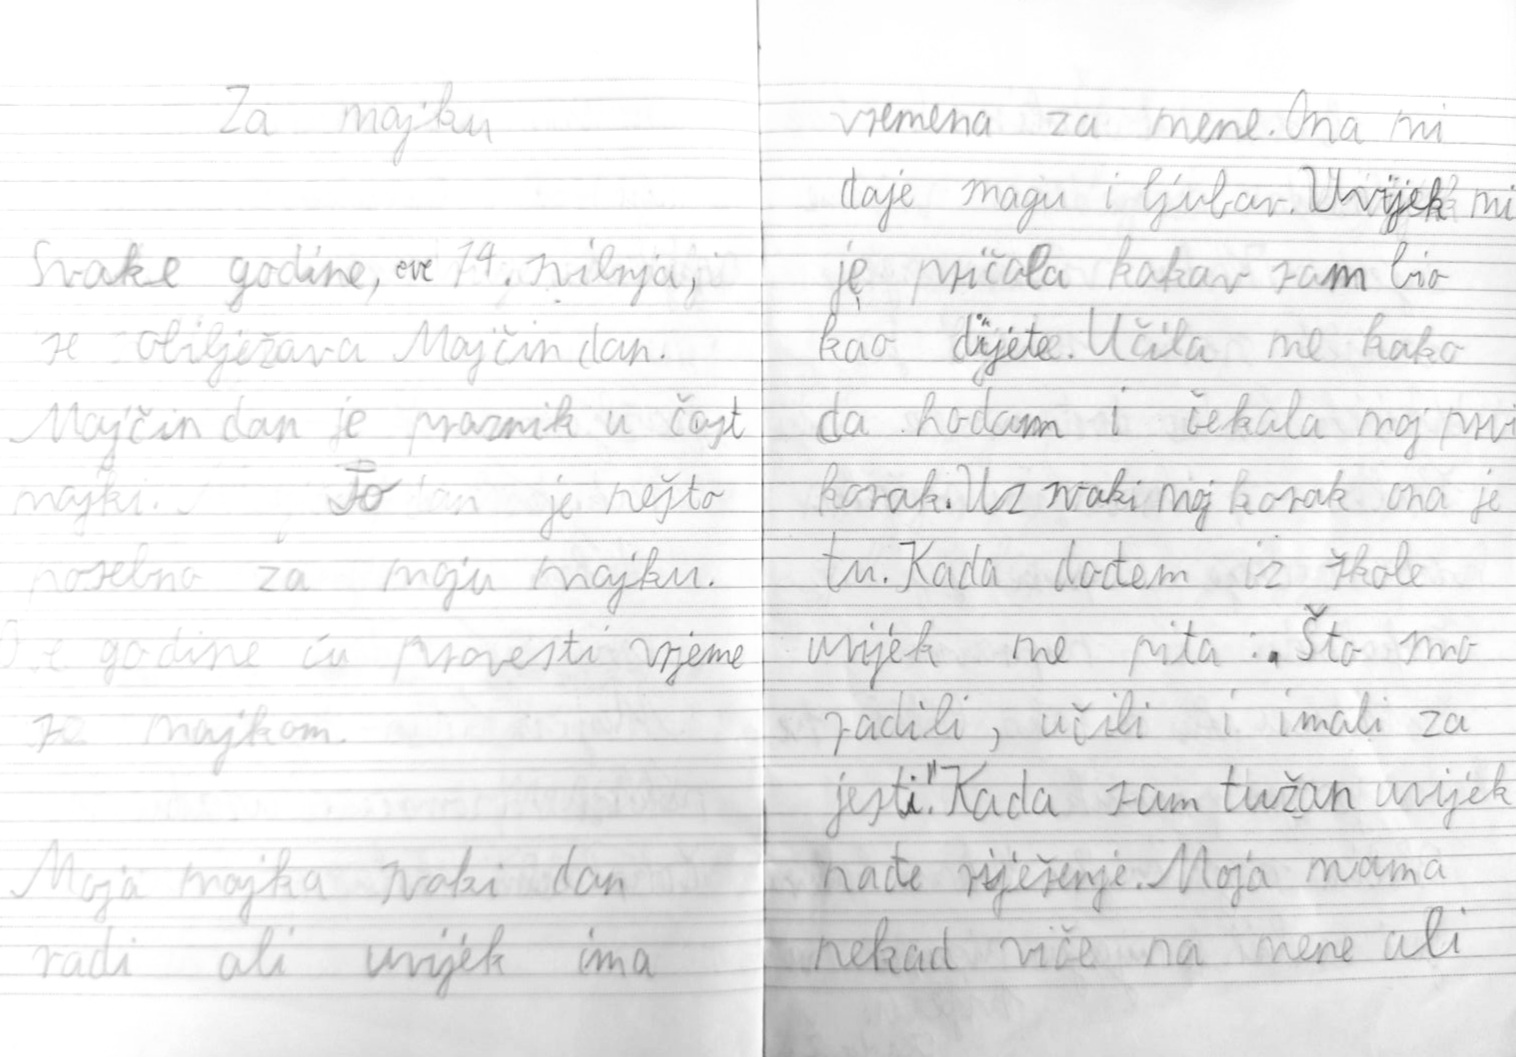 Za majku
Svake godine, ove 14. svibnja,
se obilježava Majčin dan.
Majčin dan je praznik u čast
majki. To dan je nešto
posebno za moju majku.
Ove godine ću provesti vrjeme
sa majkom.
Moja majka svaki dan
radi ali uvijek ima
vremena za mene. Ona mi
daje snagu i ljubav. Uvijek mi
je pričala kakav sam bio
kao dijete. Učila me kako
da hodam i čekala moj prvi
korak. Uz svaki moj korak ona je
tu. Kada dođem iz škole
uvijek me pita: „Što smo
radili, učili i imali za
jesti." Kada sam tužan uvijek
nađe riješenje. Moja mama
nekad viče na mene ali